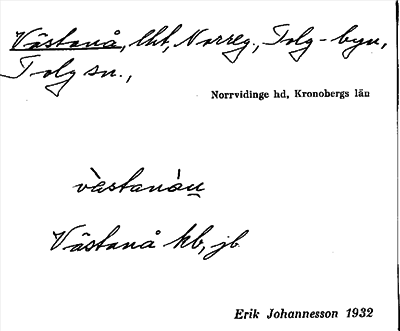 Västanå, lht, Norreg., Tolg-byn,
Tolg sn.,
Norrvidinge hd, Kronobergs län
vàstanáu̲
Västanå kb, jb
Erik Johannesson 1932